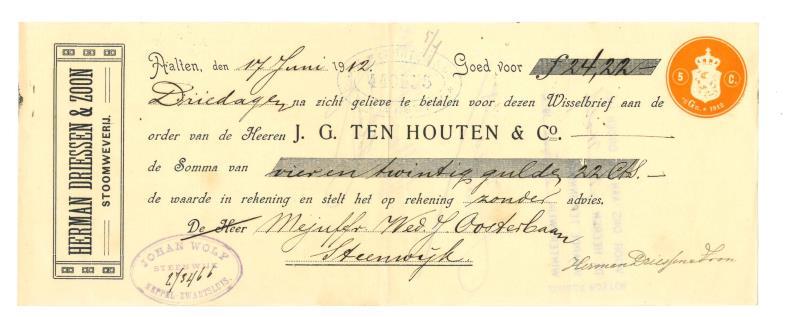 HERMAN DRIESSEN & ZOON
STOOMWEVERIJ.
Aalten, den 17 Juni 1912. Goed voor f 24,22
5 C.
1912
Driedagen na zicht gelieve te betalen voor dezen Wisselbrief aan de
order van de Heeren J. G. TEN HOUTEN & Co.
de Somma van vier en twintig gulde, 22 Cts.
de waarde in rekening en stelt het op rekening zonder advies.
De Heer Mejuffr. Wed. J. Oosterbaan
Steenwijk.
Herman Driessen & Zoon
JOHAN WOLF
STEENWIJK
MEPPEL-ZWARTSLUIS.